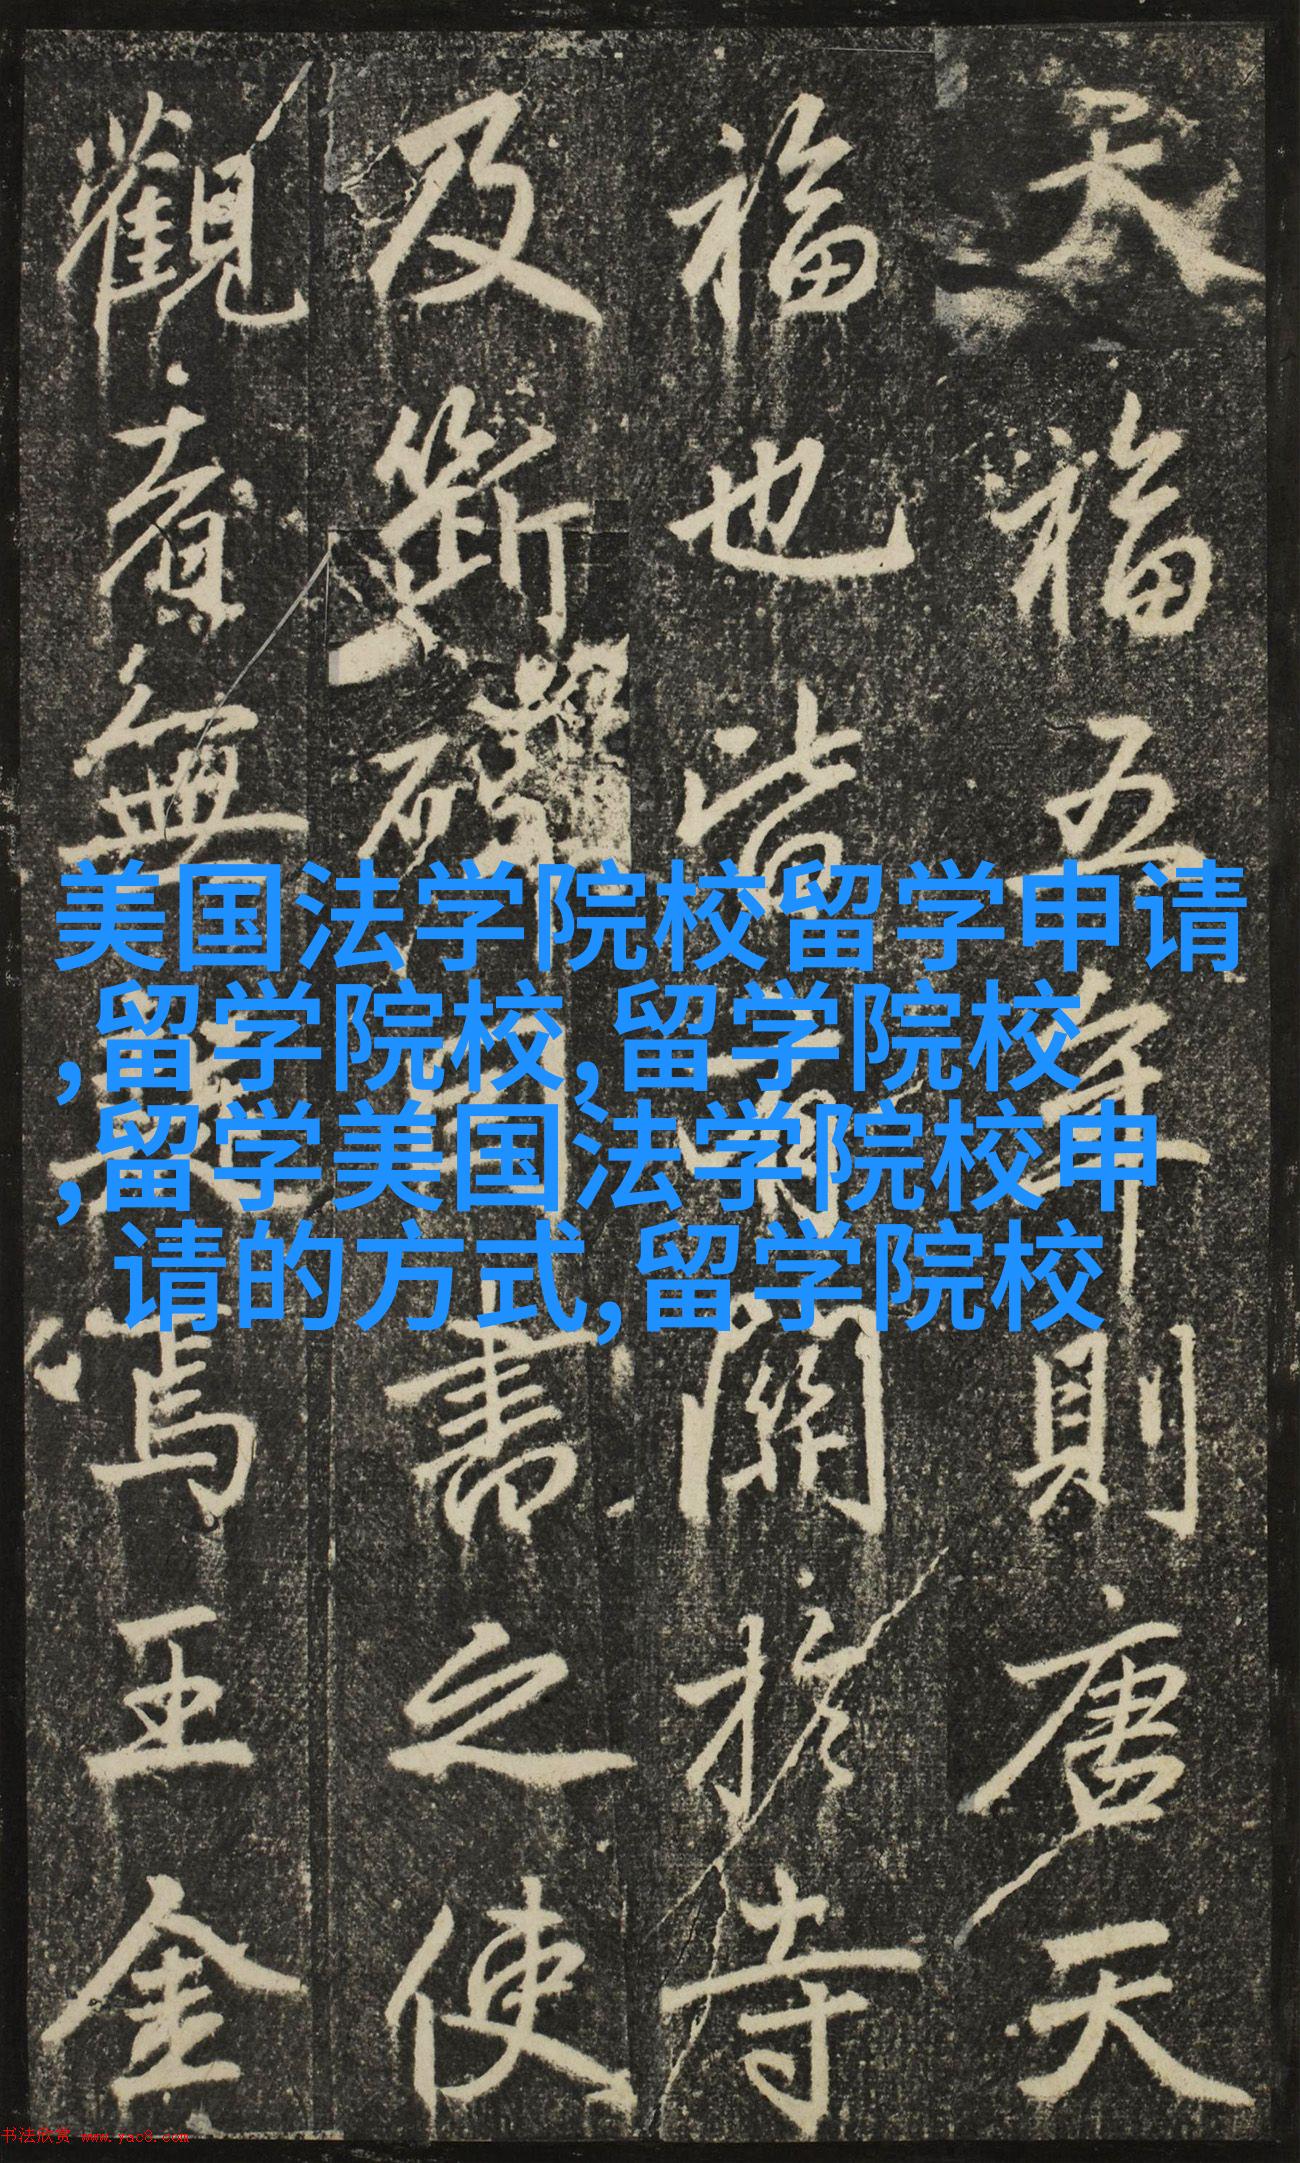 天福五年則唐天
福也皆關於寺
及斷碑書之使
觀無焉王金
美国法学院校留学申请
,留学院校,留学院校
,留学美国法学院校申
请的方式,留学院校
书法欣赏 www.yac8.com